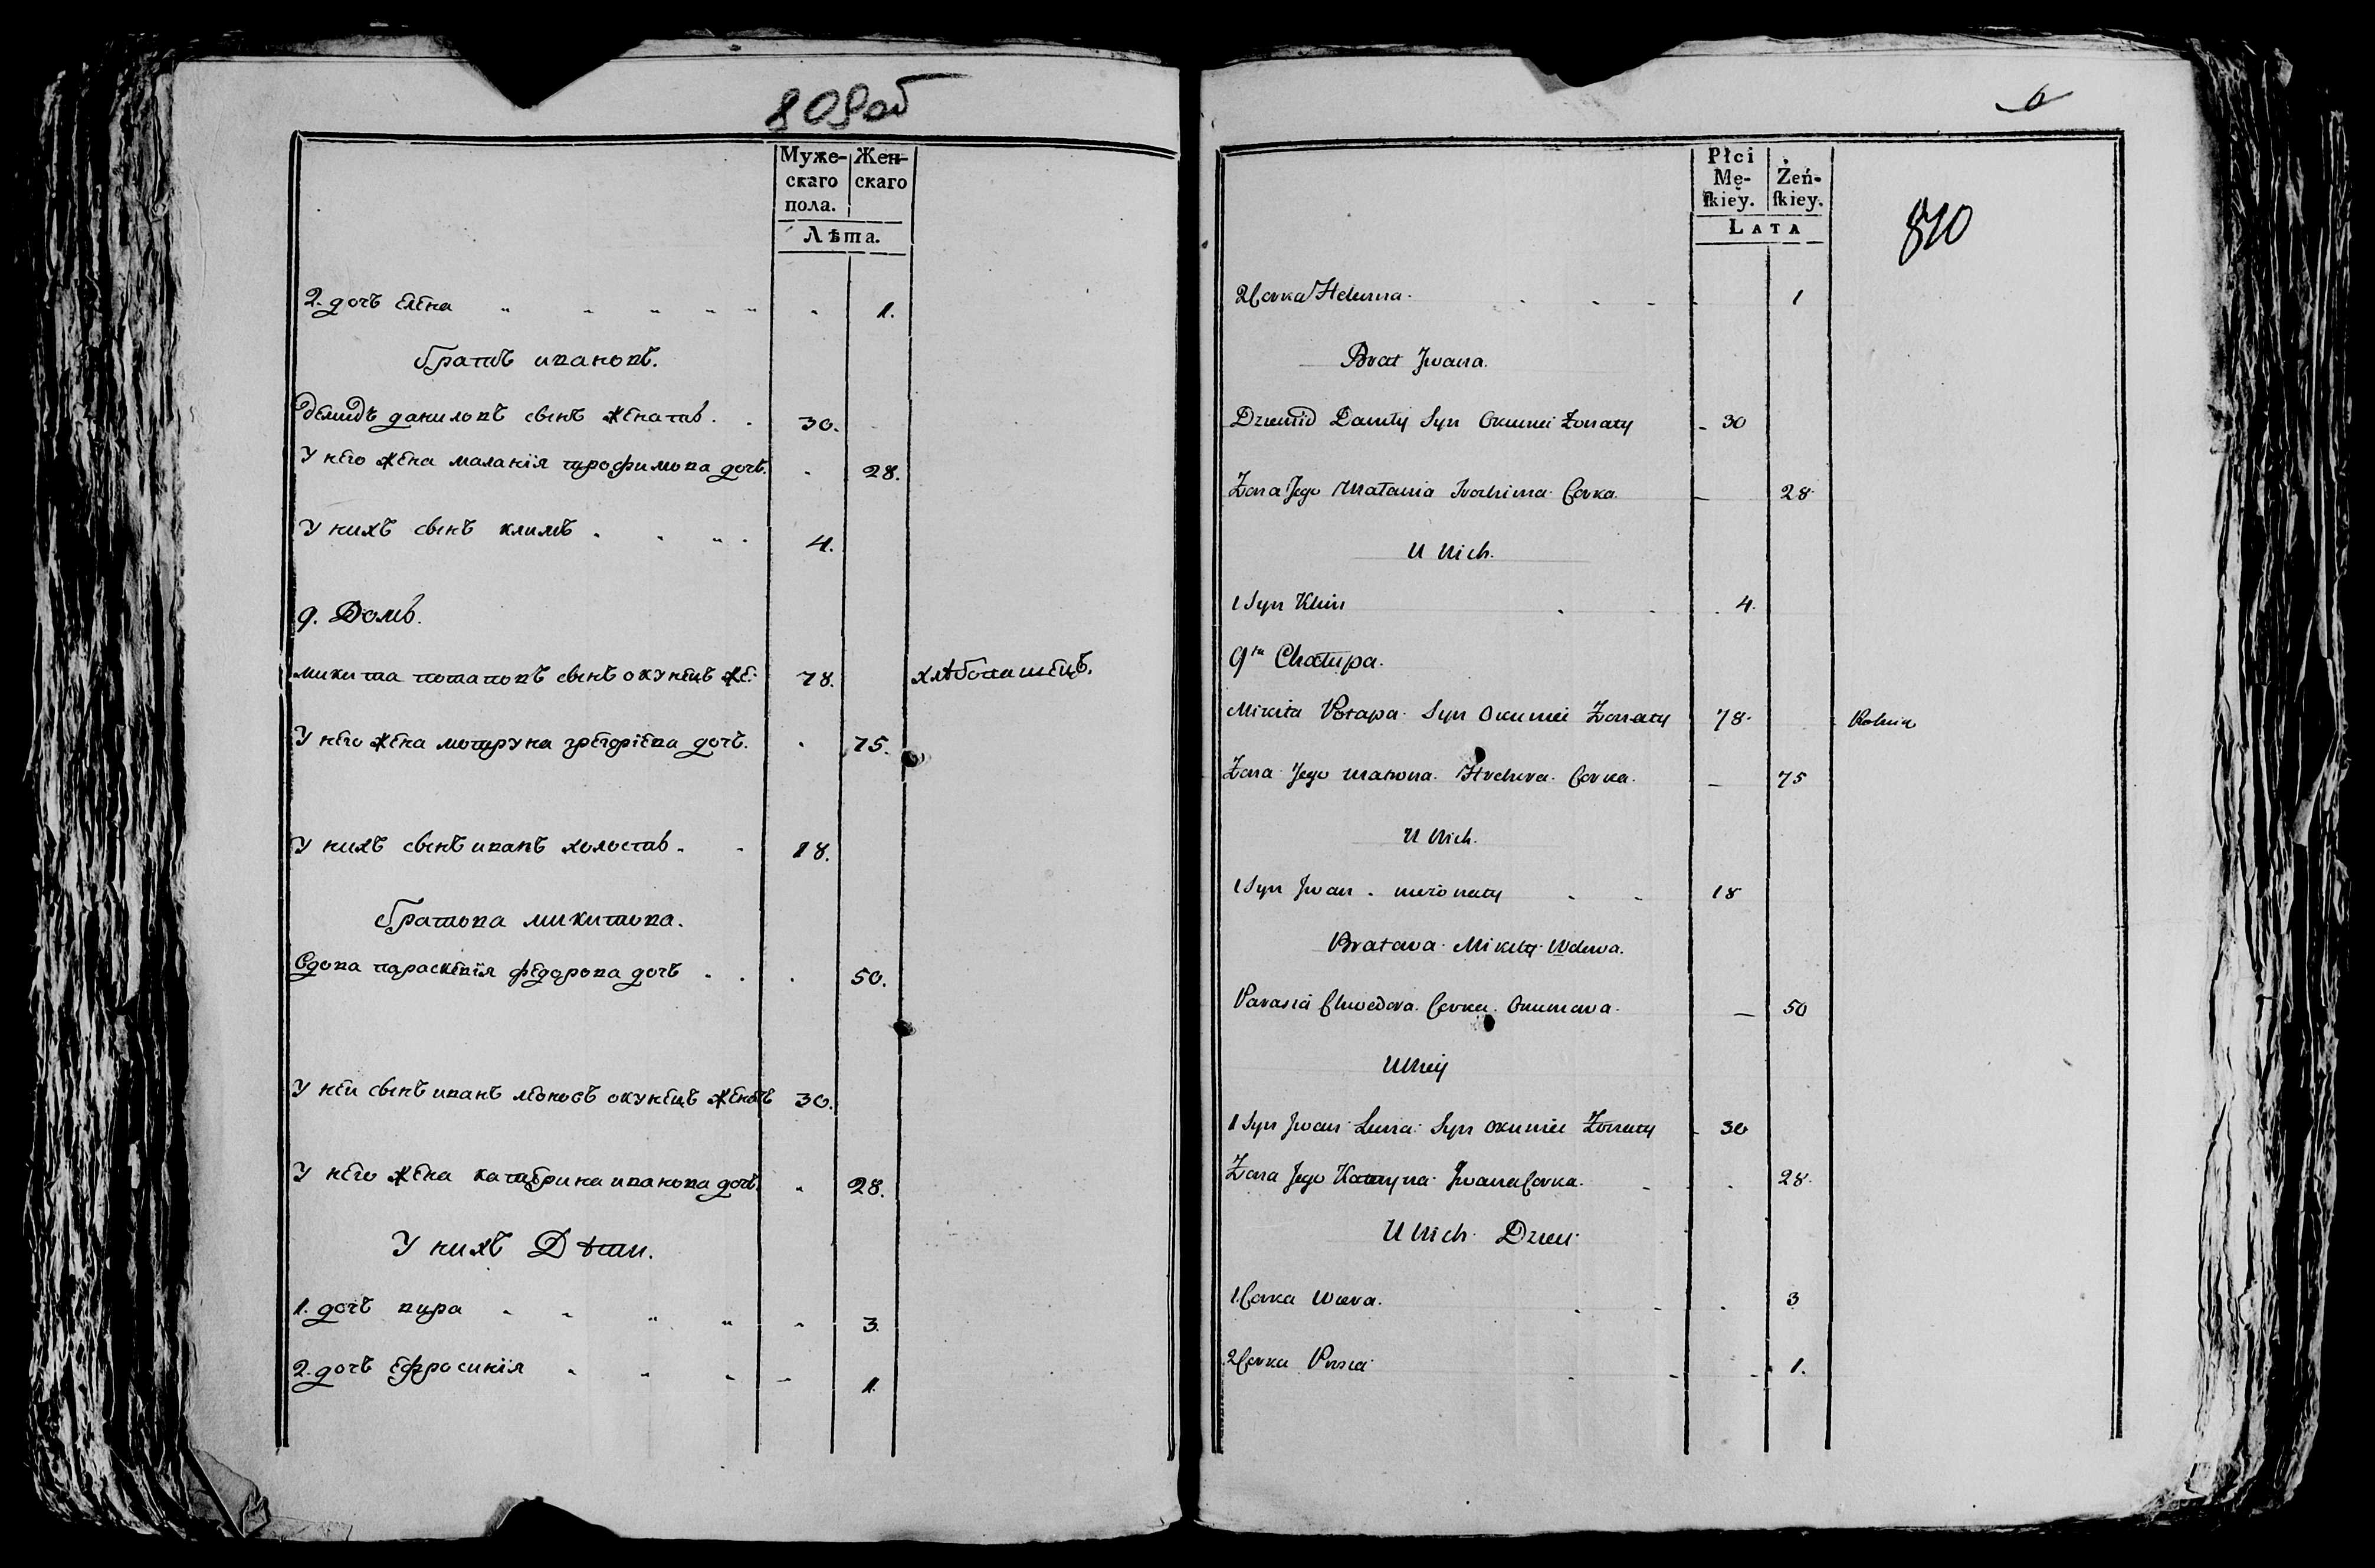 809об
Муже- Жен-
скаго скаго
пола.
Лѣта.
2. дочъ елена 1.
братъ ивановъ.
демидъ даниловъ сынъ женатъ. 30.
У него жена маланія трофимова дочъ. 28.
У нихъ сынъ климъ 4.
9. Домъ.
микита потаповъ сынъ окунецъ же: 78. хлѣбопашецъ.
У него жена мотруна дочъ. 75.
У нихъ сынъ иванъ холостъ. 18.
братова микитова.
вдова параскевія федорова дочъ 50.
У неи сынъ иванъ окунецъ женатъ 30.
У него жена катерина иванова дочъ. 28.
У нихъ Дѣти.
1. дочъ вѣра 3.
2. дочъ ефросинія 1.
6
810
Płci
Mę- Żeń-
skiey. skiey.
LATA
2 Corka Helenna. 1
Brat Jwana.
Dziemid Daniły Syn Okuniei Zonaty 30
Zona Jego Małania Corka. 28
U Nich.
1 Syn Klim 4.
9ta Chałupa.
Mikita Potapa Syn Okuniei Zonaty 78. Rolnik
Zona Jego Matrona Corka. 75
U Nich.
1 Syn Jwan niezonaty 18
Bratowa Mikity Wdowa.
Parasia Chwedora Corka. Okuniowa. 50
U Niey
1 Syn Jwan Syn Okuniei Zonaty 30
Zona Jego Kateryna Jwana Corka. 28.
U Nich Dzieci
1. Corka Wiera. 3
2 Corka Prosia 1.